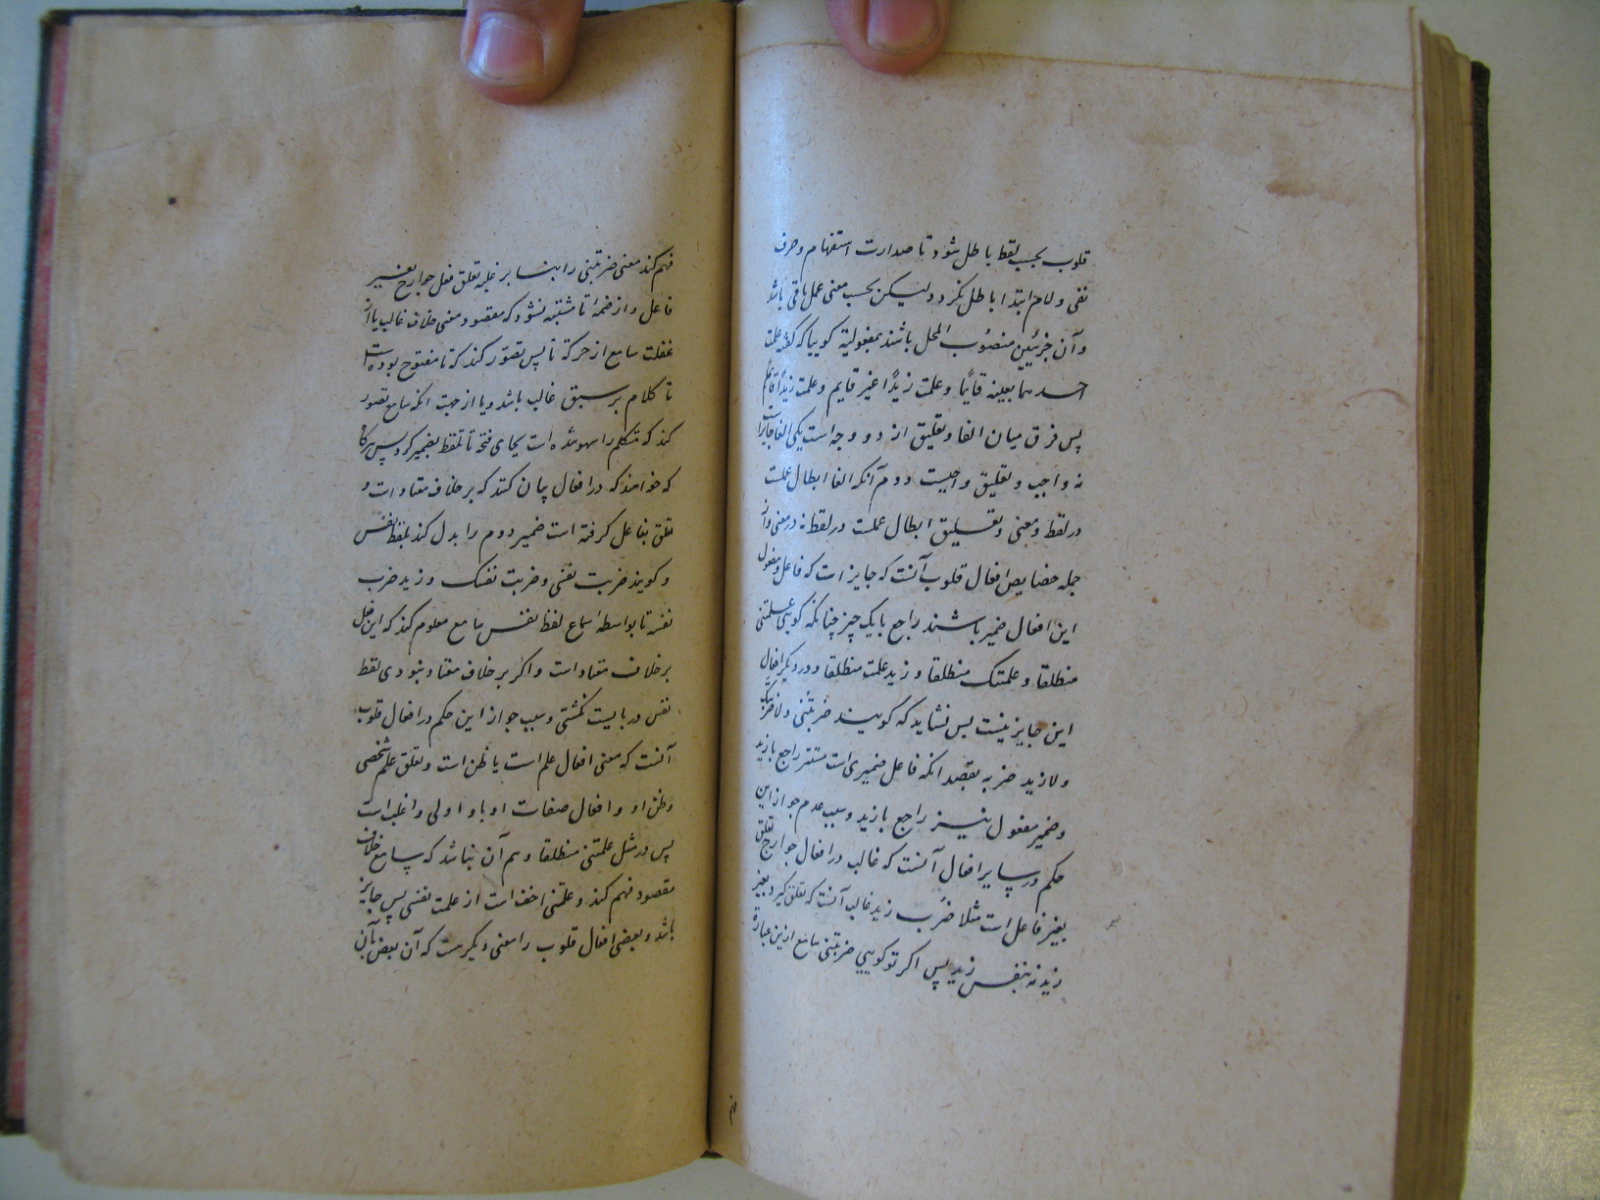 قلوب بحسب لفظ باطل شود تا صدارت استفهام و حرف
نفی و لام ابتدا باطل نکردد و لیکن بحسب معنی عمل باقی باشد
و آن جزئین منصوب المحل باشند بمفعولیة کوییا که کفته علمت
احدهما بعینه قایما و علمت زیدا غیر قایم و علمت زیدا قایم
پس فرق میان الغا و تعلیق از دو وجه است یکی الغا جایز است
نه واجب و تعلیق واجبست دوم آنکه الغا ابطال عملست
در لفظ و معنی و تعلیق ابطال عملست در لفظ نه در معنی و از
جمله خصایص افعال قلوب آنست که جایز است که فاعل و مفعول
این افعال ضمیر باشند راجع با یک چیز چنانکه کویی علمتنی
منطلقا و علمتک منطلقا و زید علمت منطلقا و در دیکر افعال
این جایز نیست پس نشاید که کویند ضربتنی و لا ضربتک
و لا زید ضربه بقصد انکه فاعل ضمیری است مستتر راجع با زید
و ضمیر مفعول نیز راجع با زید و سبب عدم جواز این
حکم در سایر افعال آنست که غالب در افعال جوارح تعلق
بغیر فاعل است مثلا ضرب زید غالب آنست که تعلق کیرد بغیر
زید نه بنفس زید پس اکر تو کویی ضربتنی سامع ازین عبارة
فهم کند معنی ضربتنی را بنا بر غلبه تعلق فعل جوارح بغیر
فاعل و از ضمهٔ تا مشتبه نشود که مقصود معنی خلاف غالب یا از
غفلت سامع از حرکة تا پس تصور کند که تا مفتوح بوده است
تا کلام بر سبق غالب باشد و یا از جهت انکه سامع تصور
کند که متکلم را سهو شده است بجای فتحه تا تلفظ بضم کرد پس هرکاه
که خواهند که در افعال بیان کنند که بر خلاف معتاد است و
تعلق بفاعل کرفته است ضمیر دوم را بدل کند بلفظ نفس
و کویند ضربت نفسی و ضربت نفسک و زید ضرب
نفسه تا بواسطهٔ سماع لفظ نفس سامع معلوم کند که این فعل
بر خلاف معتاد است و اکر بر خلاف معتاد نبودی لفظ
نفس دربایست نکشتی و سبب جواز این حکم در افعال قلوب
آنست که معنی افعال علم است یا ظن است و تعلق علم شخصی
و ظن او و افعال صفات او با و اولی و اغلب است
پس در مثل علمتنی منطلقا وهم آن نباشد که سامع خلاف
مقصود فهم کند و علمتنی اخف است از علمت نفسی پس جایز
باشد و بعضی افعال قلوب را معنی دیکر هست که آن بعض بآن